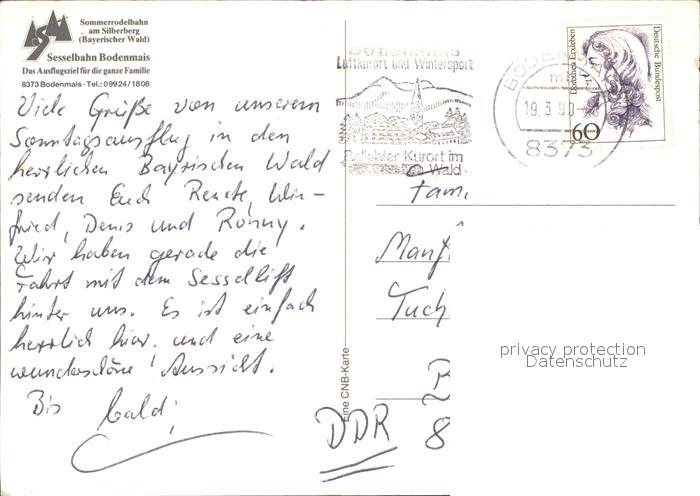 Sommerrodelbahn
am Silberberg
(Bayerischer Wald)
Sesselbahn Bodenmais
Das Ausflugsziel für die ganze Familie
8373 Bodenmais · Tel.: 09924/1808
Viele Grüße von unserem
Sonntagsausflug in den
herrlichen Bayrischen Wald
senden Euch Renate, Win-
fried, Denis und Ronny.
Wir haben gerade die
Fahrt mit dem Sessellift
hinter uns. Es ist einfach
herrlich hier und eine
wunderschöne Aussicht.
Bis bald!
Eine CNB-Karte
Bodenmais
Luftkurort und Wintersport
Beliebter Kurort im
Wald
BODENMAIS
19.3.90
8373
Dorothea Erxleben
Deutsche Bundespost
60
Fam.
Manf
Tuch
DDR
8
privacy protection
Datenschutz